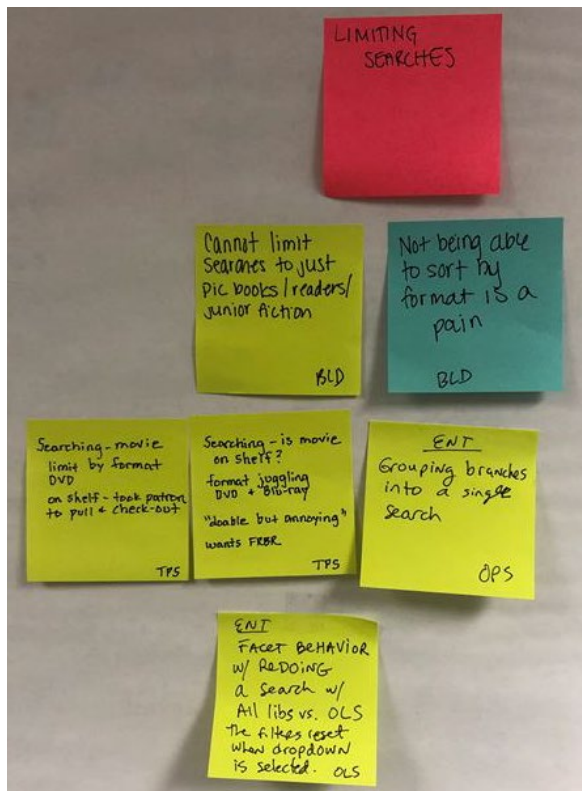 LIMITING
SEARCHES
Cannot limit
searches to just
pic books/readers/
junior fiction
BLD
Not being able
to sort by
format is a
pain
BLD
Searching - movie
limit by format
DVD
on shelf - took patron
to pull & check-out
TPS
Searching - is movie
on shelf?
format juggling
DVD + Blu-ray
"doable but annoying"
wants FRBR
TPS
ENT
Grouping branches
into a single
search
OPS
ENT
FACET BEHAVIOR
w/ REDOING
a search w/
All libs vs. OLS
The filters reset
when dropdown
is selected. OLS